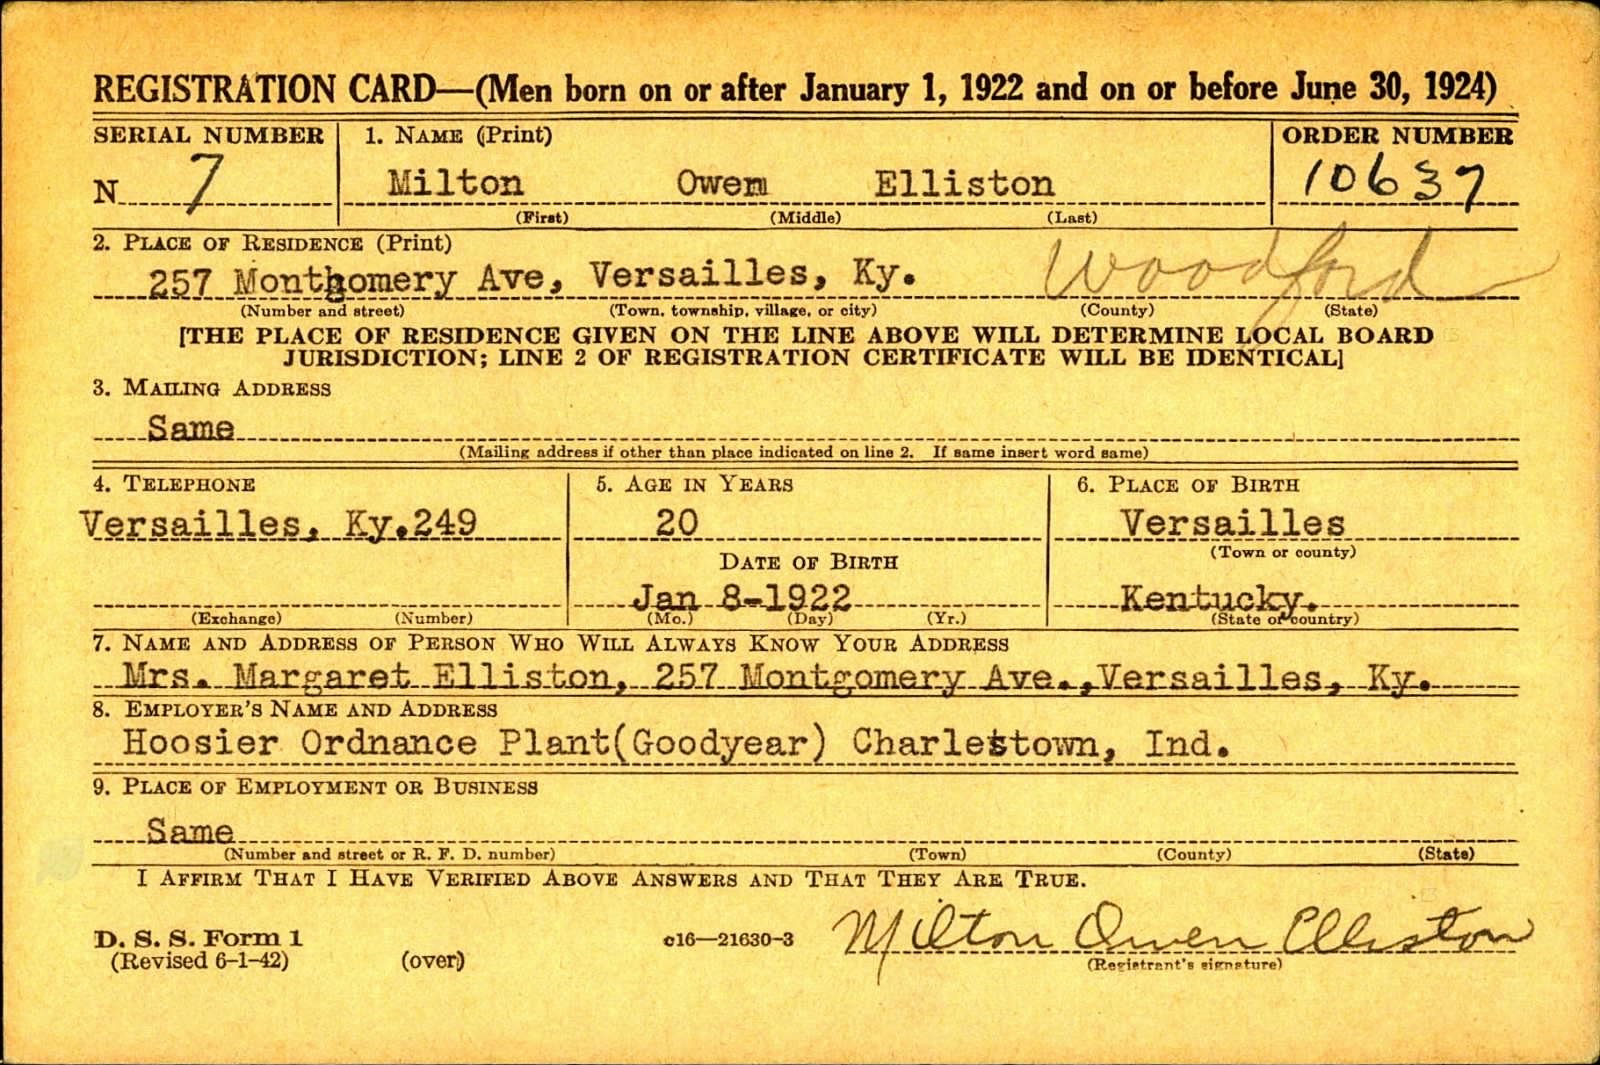 REGISTRATION CARD—(Men born on or after January 1, 1922 and on or before June 30, 1924)
SERIAL NUMBER 1. NAME (Print) ORDER NUMBER
N 7 Milton Owen Elliston 10637
(First) (Middle) (Last)
2. PLACE OF RESIDENCE (Print)
257 Montgomery Ave, Versailles, Ky. Woodford
(Number and street) (Town, township, village, or city) (County) (State)
[THE PLACE OF RESIDENCE GIVEN ON THE LINE ABOVE WILL DETERMINE LOCAL BOARD
JURISDICTION; LINE 2 OF REGISTRATION CERTIFICATE WILL BE IDENTICAL]
3. MAILING ADDRESS
Same
(Mailing address if other than place indicated on line 2. If same insert word same)
4. TELEPHONE 5. AGE IN YEARS 6. PLACE OF BIRTH
Versailles, Ky.249 20 Versailles
(Town or county)
DATE OF BIRTH
Jan 8-1922 Kentucky.
(Exchange) (Number) (Mo.) (Day) (Yr.) (State or country)
7. NAME AND ADDRESS OF PERSON WHO WILL ALWAYS KNOW YOUR ADDRESS
Mrs. Margaret Elliston, 257 Montgomery Ave.,Versailles, Ky.
8. EMPLOYER'S NAME AND ADDRESS
Hoosier Ordnance Plant(Goodyear) Charlestown, Ind.
9. PLACE OF EMPLOYMENT OR BUSINESS
Same
(Number and street or R. F. D. number) (Town) (County) (State)
I AFFIRM THAT I HAVE VERIFIED ABOVE ANSWERS AND THAT THEY ARE TRUE.
D. S. S. Form 1 c16—21630-3 Milton Owen Elliston
(Revised 6-1-42) (over) (Registrant's signature)